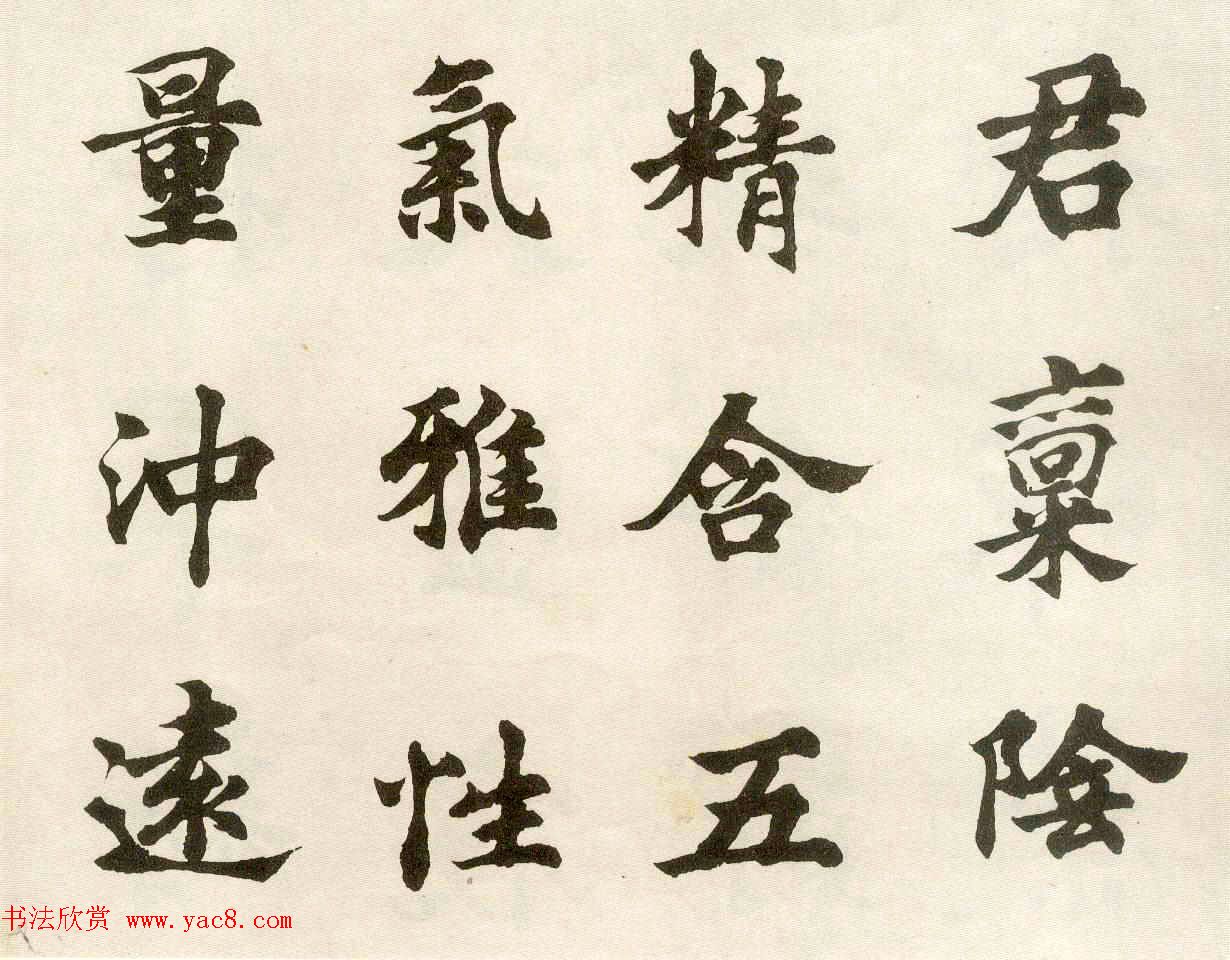 君稟陰
精含五
氣雅性
量沖遠
书法欣赏 www.yac8.com